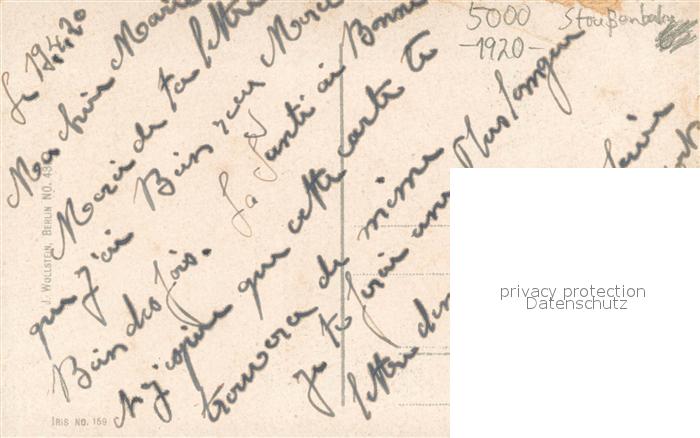 5000 Straßenbahn
-1920-
Le 19.4.20
Ma chère Marie
Merci de ta lettre
que j'ai Bien reçu Merci
Bien des fois. La Santé ai Bonne
n j'espère que cette carte te
trouvera de même
je te ferai une Plus longue
lettre
J. WOLLSTEIN, BERLIN NO. 43
IRIS NO. 159
privacy protection
Datenschutz